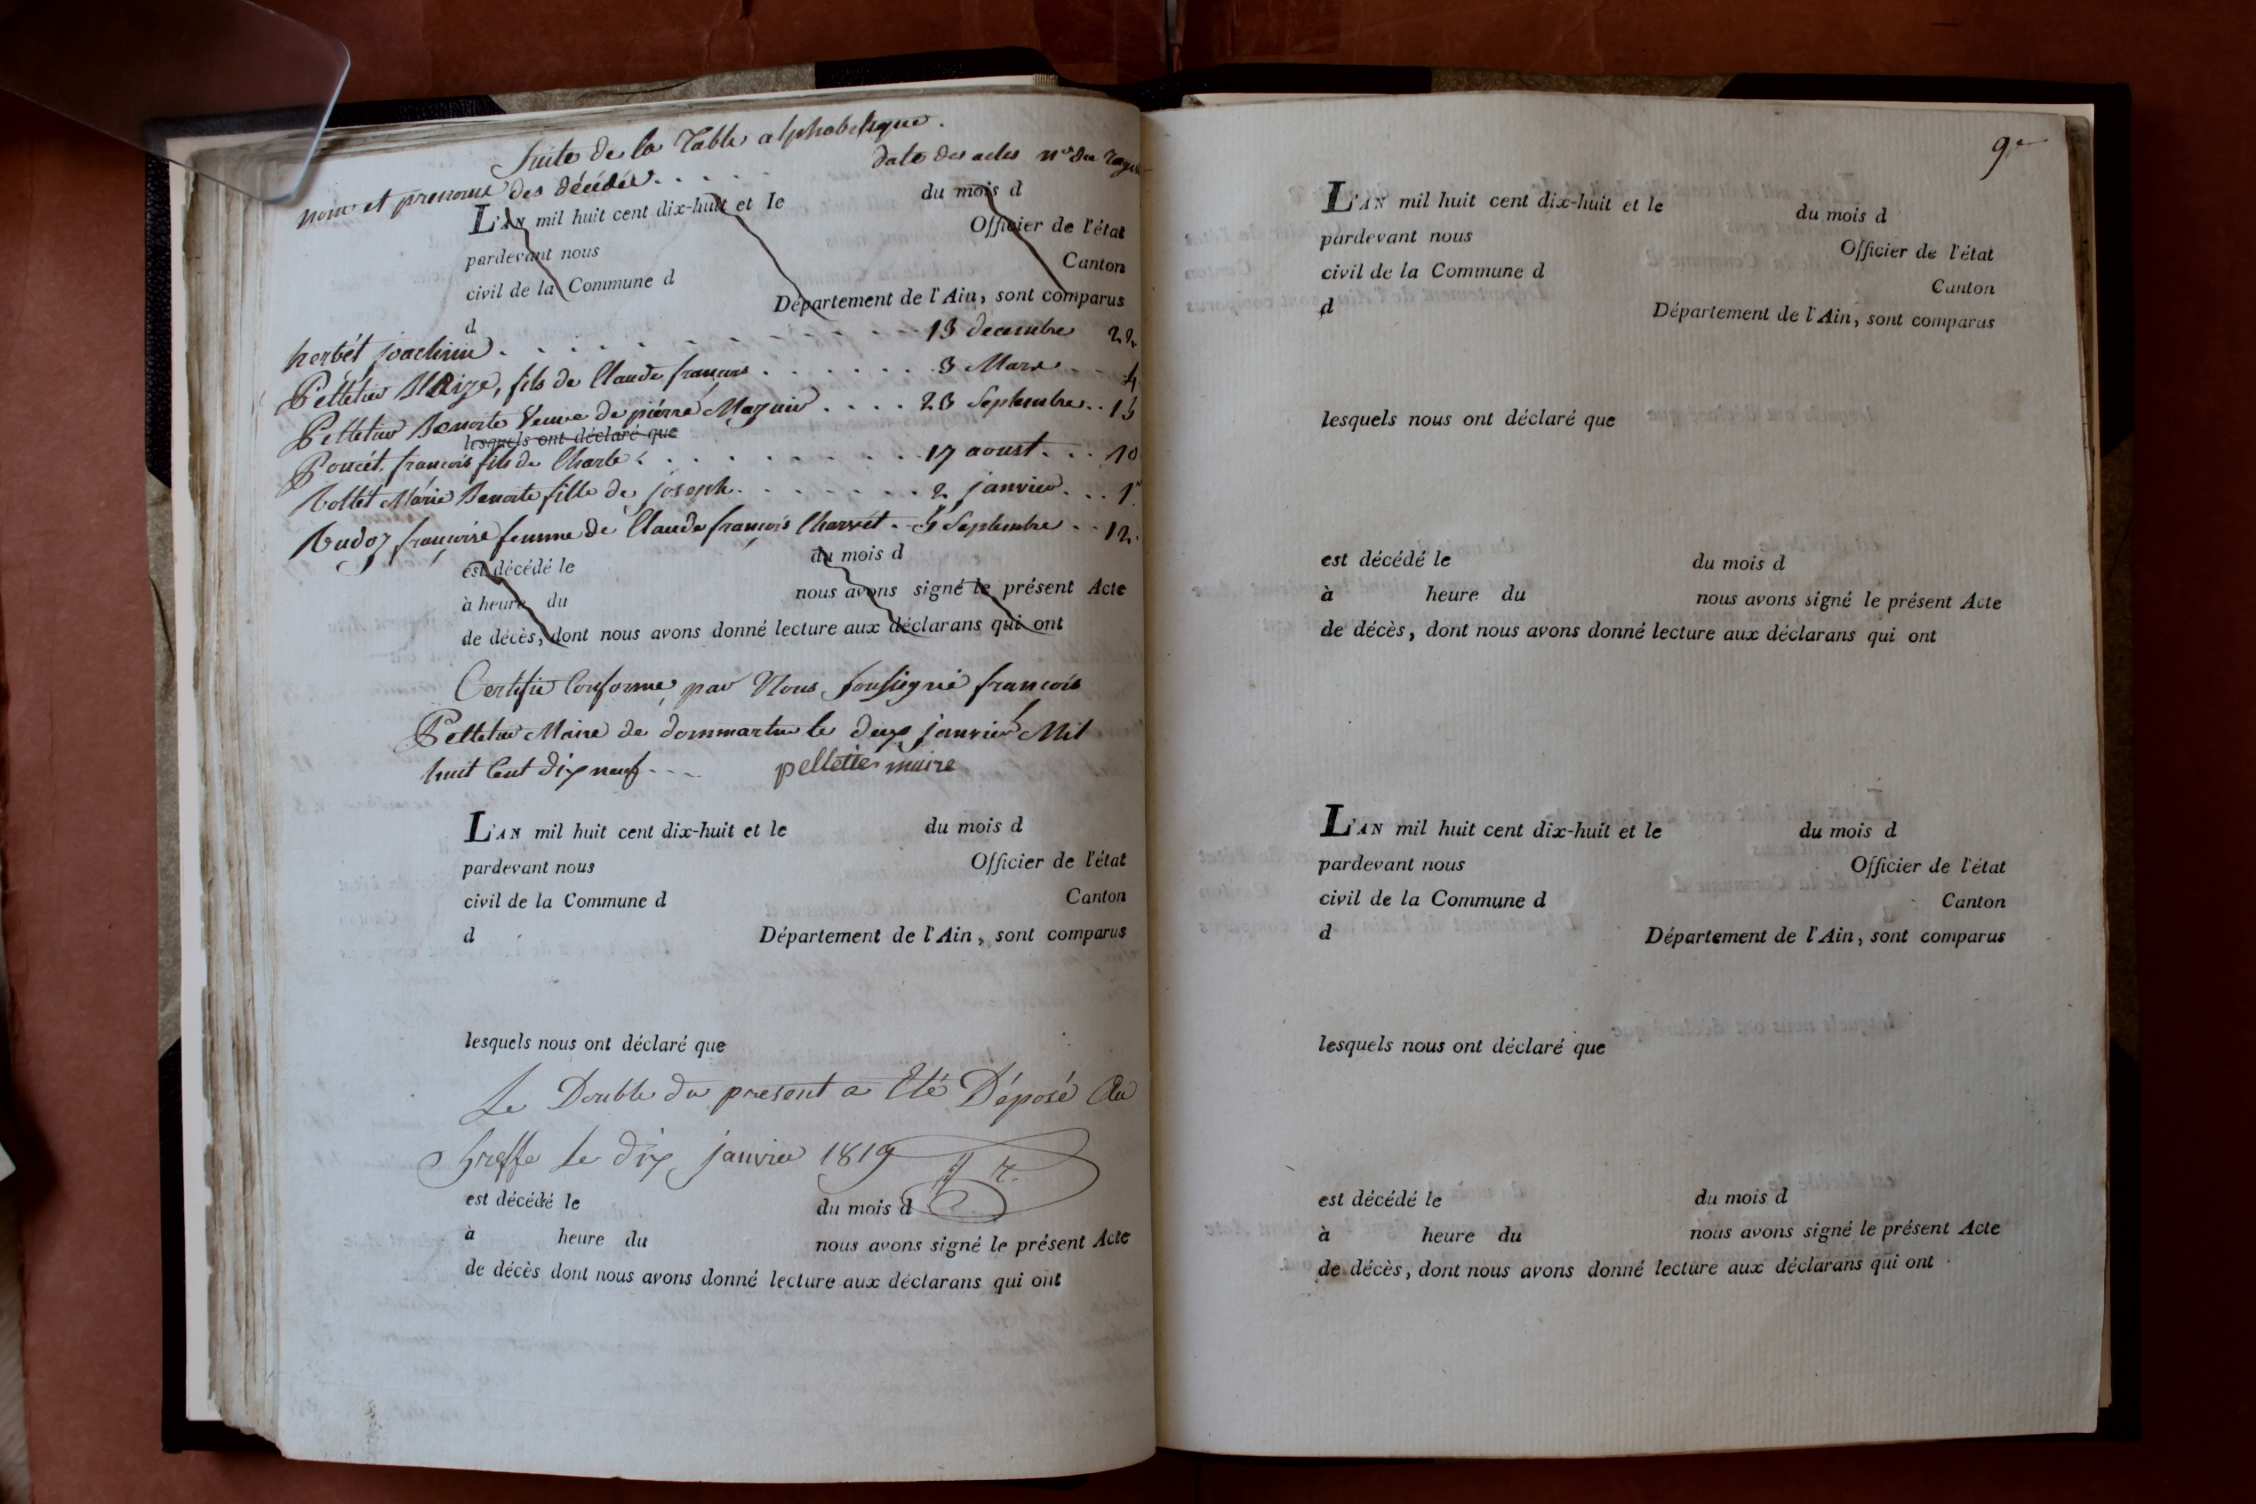 Suite de la Table alphabetique.
nom et prenoms des décédés. . . . . date des actes nos du
L'AN mil huit cent dix-huit et le du mois d
pardevant nous Officier de l'état
civil de la Commune d Canton
d Département de l'Ain, sont comparus
herbét joachim . . . . . . . . . . 13 decembre 22
Pelletier Blaize, fils de Claude françois . . . . . . . 3 Mars . . 4
Pelletier Benoite Veuve de piérre Magnin . . . . 23 Septembre . . 15
lesquels ont déclaré que
Poncét françois fils de Charle . . . . . . . . . . 17 aoust . . . 10
Vollet Marie Benoite fille de joseph . . . . . . . 2 janvier . . . 1r
Vudoz françoise femme de Claude françois Charvét . 5 Septembre . . 12.
est décédé le du mois d
à heure du nous avons signé le présent Acte
de décès, dont nous avons donné lecture aux déclarans qui ont
Certifié Conforme par Nous Soussigné françois
Pelletier Maire de dommartin le deux janvier Mil
huit Cent dix neuf - - - pelletier maire
L'AN mil huit cent dix-huit et le du mois d
pardevant nous Officier de l'état
civil de la Commune d Canton
d Département de l'Ain, sont comparus
lesquels nous ont déclaré que
Le Double du present a Eté Déposé Au
Greffe le dix janvier 1819
est décédé le du mois d
à heure du nous avons signé le présent Acte
de décès dont nous avons donné lecture aux déclarans qui ont
9e
L'AN mil huit cent dix-huit et le du mois d
pardevant nous Officier de l'état
civil de la Commune d Canton
d Département de l'Ain, sont comparus
lesquels nous ont déclaré que
est décédé le du mois d
à heure du nous avons signé le présent Acte
de décès, dont nous avons donné lecture aux déclarans qui ont
L'AN mil huit cent dix-huit et le du mois d
pardevant nous Officier de l'état
civil de la Commune d Canton
d Département de l'Ain, sont comparus
lesquels nous ont déclaré que
est décédé le du mois d
à heure du nous avons signé le présent Acte
de décès, dont nous avons donné lecture aux déclarans qui ont